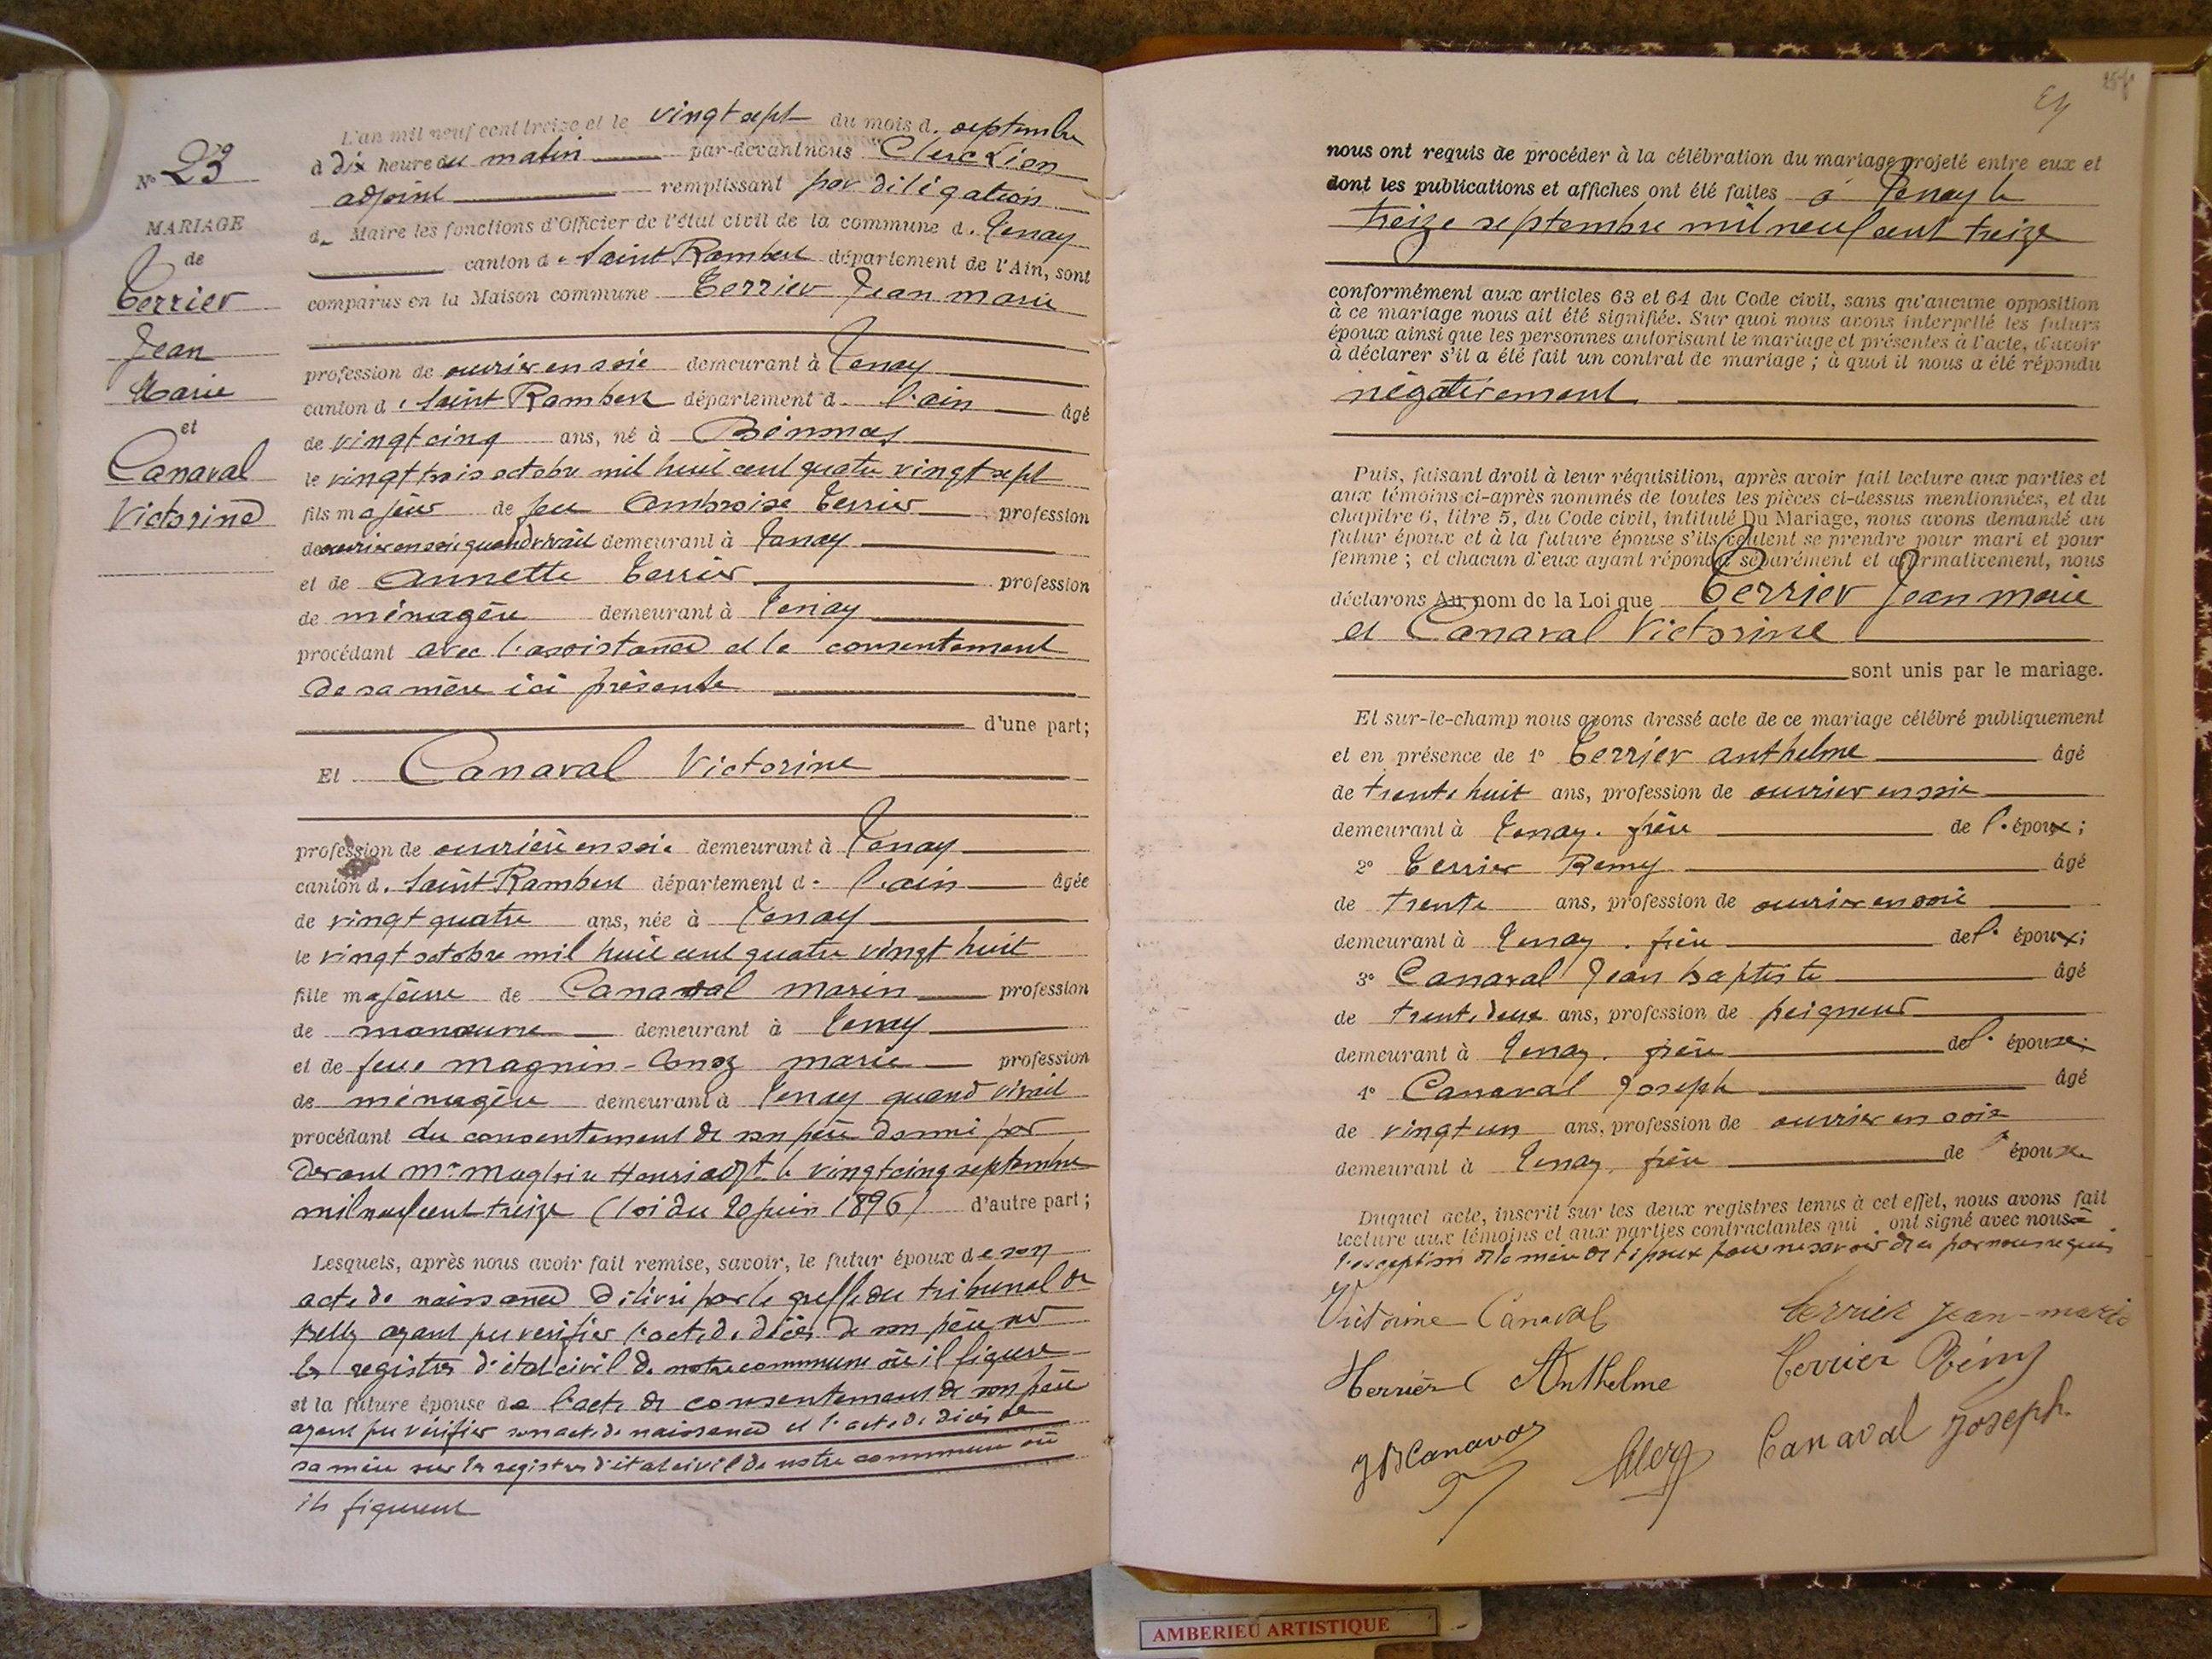 L'an mil neuf cent treize et le vingt sept du mois d. septembre
N° 23
à dix heure du matin par-devant nous Clerc Léon
adjoint remplissant par délégation
MARIAGE
d. Maire les fonctions d'Officier de l'état civil de la commune d. Tenay
canton de Saint Rambert département de l'Ain, sont
comparus en la Maison commune Terrier Jean Marie
de
Terrier
Jean
Marie
et
Canaval
Victorine
profession de ouvrier en soie demeurant à Tenay
canton de Saint Rambert département d. l'ain âgé
de vingt cinq ans, né à
le vingt trois octobre mil huit cent quatre vingt sept
fils majeur de feu Ambroise Terrier profession
de ouvrier en soie quand vivait demeurant à Tenay
et de Annette Terrier profession
de ménagère demeurant à Tenay
procédant avec l'assistance et le consentement
de sa mère ici présente
d'une part;
Et Canaval Victorine
profession de ouvrière en soie demeurant à Tenay
canton d. Saint Rambert département d. l'ain âgée
de vingt quatre ans, née à Tenay
le vingt octobre mil huit cent quatre vingt huit
fille majeure de Canaval Marin profession
de manœuvre demeurant à Tenay
et de feue Magnin- Marie profession
de ménagère demeurant à Tenay quand vivait
procédant du consentement de son père donné par
devant Me le vingt cinq septembre
mil neuf cent treize (loi du 20 juin 1896) d'autre part;
Lesquels, après nous avoir fait remise, savoir, le futur époux de son
acte de naissance délivré par le greffe du tribunal de
Belley ayant pu vérifier l'acte de décès de son père sur
les registres d'état civil de notre commune où il figure
et la future épouse de l'acte de consentement de son père
ayant pu vérifier son acte de naissance et l'acte de décès de
sa mère sur les registres d'état civil de notre commune où
ils figurent
nous ont requis de procéder à la célébration du mariage projeté entre eux et
dont les publications et affiches ont été faites à Tenay le
treize septembre mil neuf cent treize
conformément aux articles 63 et 64 du Code civil, sans qu'aucune opposition
à ce mariage nous ait été signifiée. Sur quoi nous avons interpellé les futurs
époux ainsi que les personnes autorisant le mariage et présentes à l'acte, d'avoir
à déclarer s'il a été fait un contrat de mariage; à quoi il nous a été répondu
négativement
Puis, faisant droit à leur réquisition, après avoir fait lecture aux parties et
aux témoins ci-après nommés de toutes les pièces ci-dessus mentionnées, et du
chapitre 6, titre 5, du Code civil, intitulé Du Mariage, nous avons demandé au
futur époux et à la future épouse s'ils veulent se prendre pour mari et pour
femme; et chacun d'eux ayant répondu séparément et affirmativement, nous
déclarons Au nom de la Loi que Terrier Jean Marie
et Canaval Victorine
sont unis par le mariage.
Et sur-le-champ nous avons dressé acte de ce mariage célébré publiquement
et en présence de 1° Terrier Anthelme âgé
de trente huit ans, profession de ouvrier en soie
demeurant à Tenay. frère de l'époux;
2° Terrier Remy âgé
de trente ans, profession de ouvrier en soie
demeurant à Tenay. frère de l'époux;
3° Canaval Jean Baptiste âgé
de trente deux ans, profession de peigneur
demeurant à Tenay. frère de l'épouse;
4° Canaval Joseph âgé
de vingt un ans, profession de ouvrier en soie
demeurant à Tenay, frère de l'épouse
Duquel acte, inscrit sur les deux registres tenus à cet effet, nous avons fait
lecture aux témoins et aux parties contractantes qui ont signé avec nous à
l'exception de la mère de l'époux pour ne savoir de ce par nous requis
Victorine Canaval Terrier Jean-marie
Terrier Anthelme Terrier Rémy
JB Canaval Clerc Canaval Joseph.
AMBERIEU ARTISTIQUE